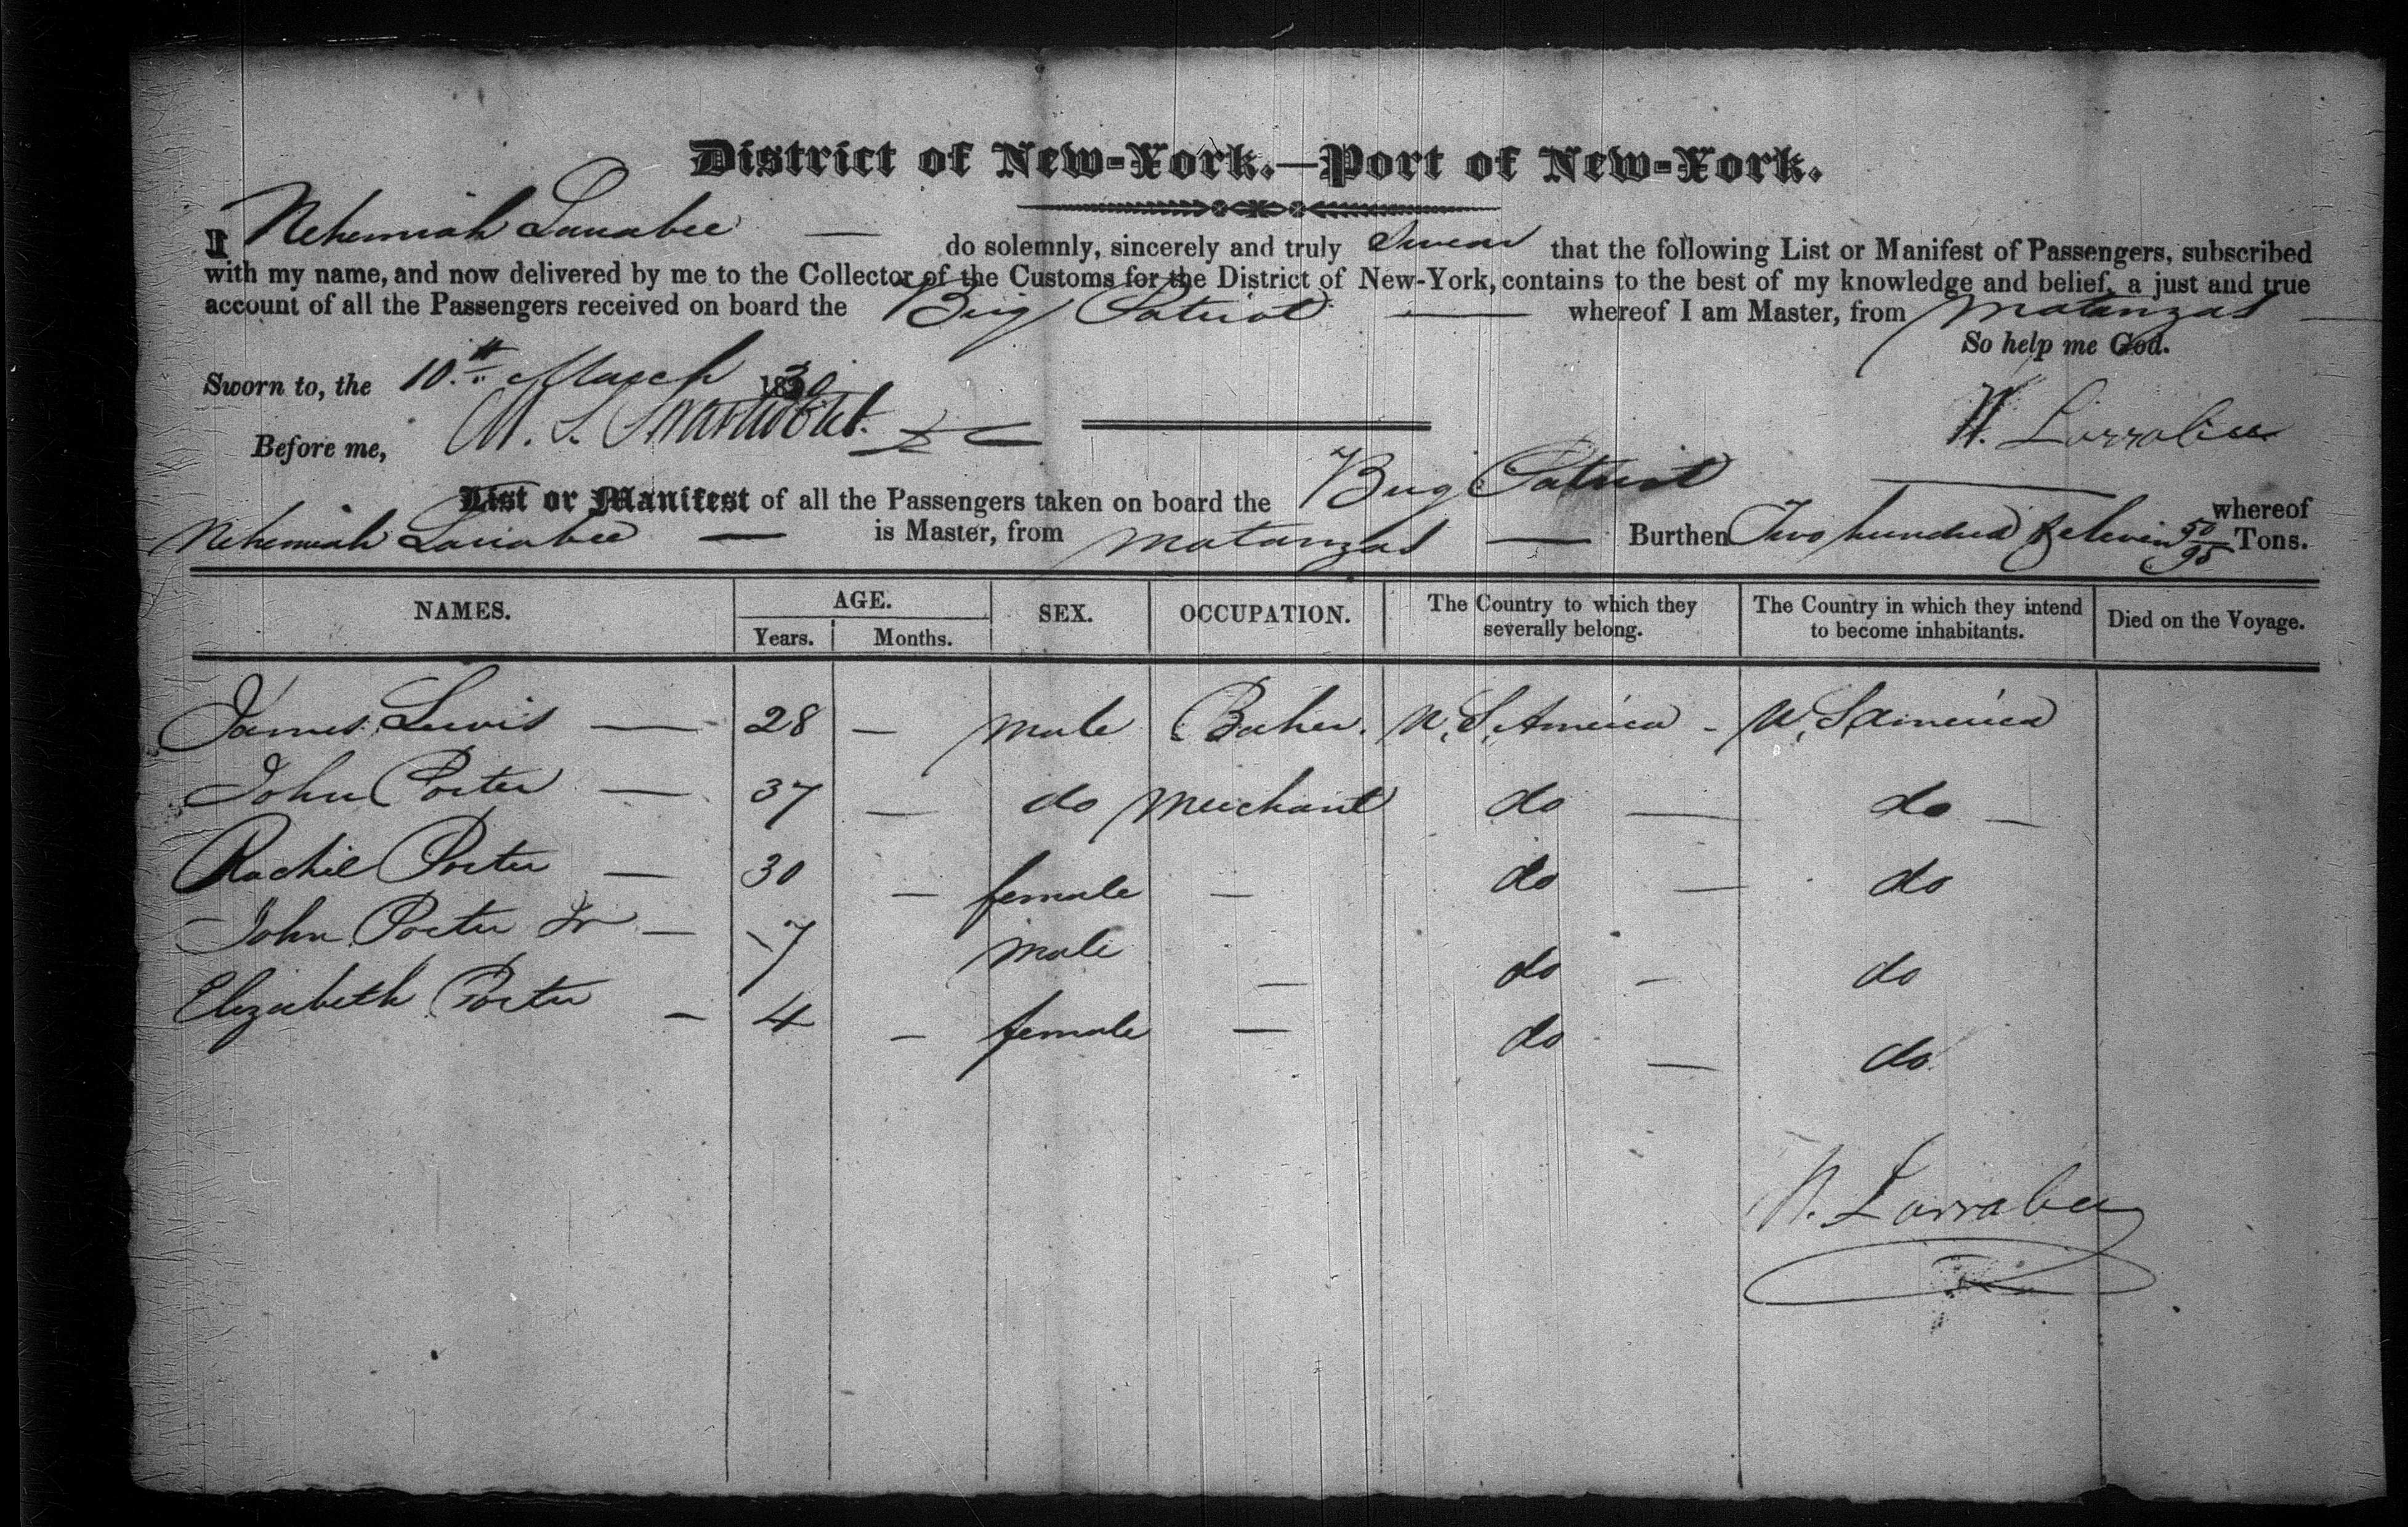 District of New-York.—Port of New-York.
I Nehemiah Larrabee — do solemnly, sincerely and truly Swear that the following List or Manifest of Passengers, subscribed
with my name, and now delivered by me to the Collector of the Customs for the District of New-York, contains to the best of my knowledge and belief, a just and true
account of all the Passengers received on board the Brig Patriot — whereof I am Master, from Matanzas —
So help me God.
Sworn to, the 10th March 1830
Before me, M. S. Swartwout. N. Larrabee
List or Manifest of all the Passengers taken on board the Brig Patriot — whereof
Nehemiah Larrabee — is Master, from Matanzas — Burthen Two hundred & eleven 50/95 Tons.
NAMES. AGE. SEX. OCCUPATION. The Country to which they severally belong. The Country in which they intend to become inhabitants. Died on the Voyage.
Years. Months.
James Lewis — 28 — male Baker. U.S. America - U.S America
John Porter — 37 — do Merchant do — do —
Rachel Porter — 30 — female — do — do
John Porter Jr — 7 male — do - do
Elizabeth Porter — 4 — female — do — do
N. Larrabee